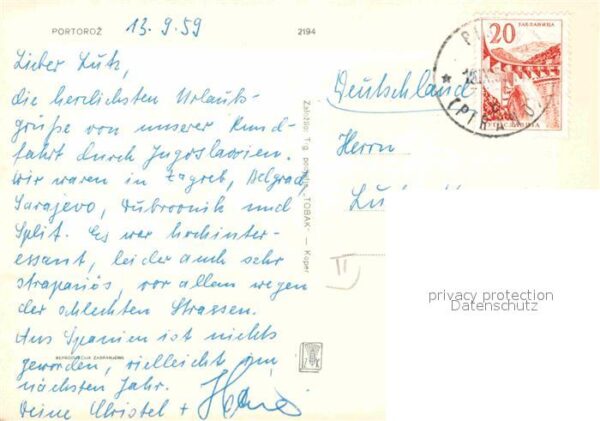 PORTOROŽ
13.9.59
2194
Lieber Lutz,
die herzlichsten Urlaubs-
grüße von unserer Rund-
fahrt durch Jugoslawien.
Wir waren in Zagreb, Belgrad,
Sarajevo, Dubrovnik und
Split. Es war hochinter-
essant, leider auch sehr
strapaziös, vor allem wegen
der schlechten Strassen.
Aus Spanien ist nichts
geworden, vielleicht im
nächsten Jahr.
Deine Christel + Hans
REPRODUKCIJA ZABRANJENA
Založilo: T. g. "TOBAK" — Koper
20
(PIRAN)
Deutschland
Herrn
II
privacy protection
Datenschutz